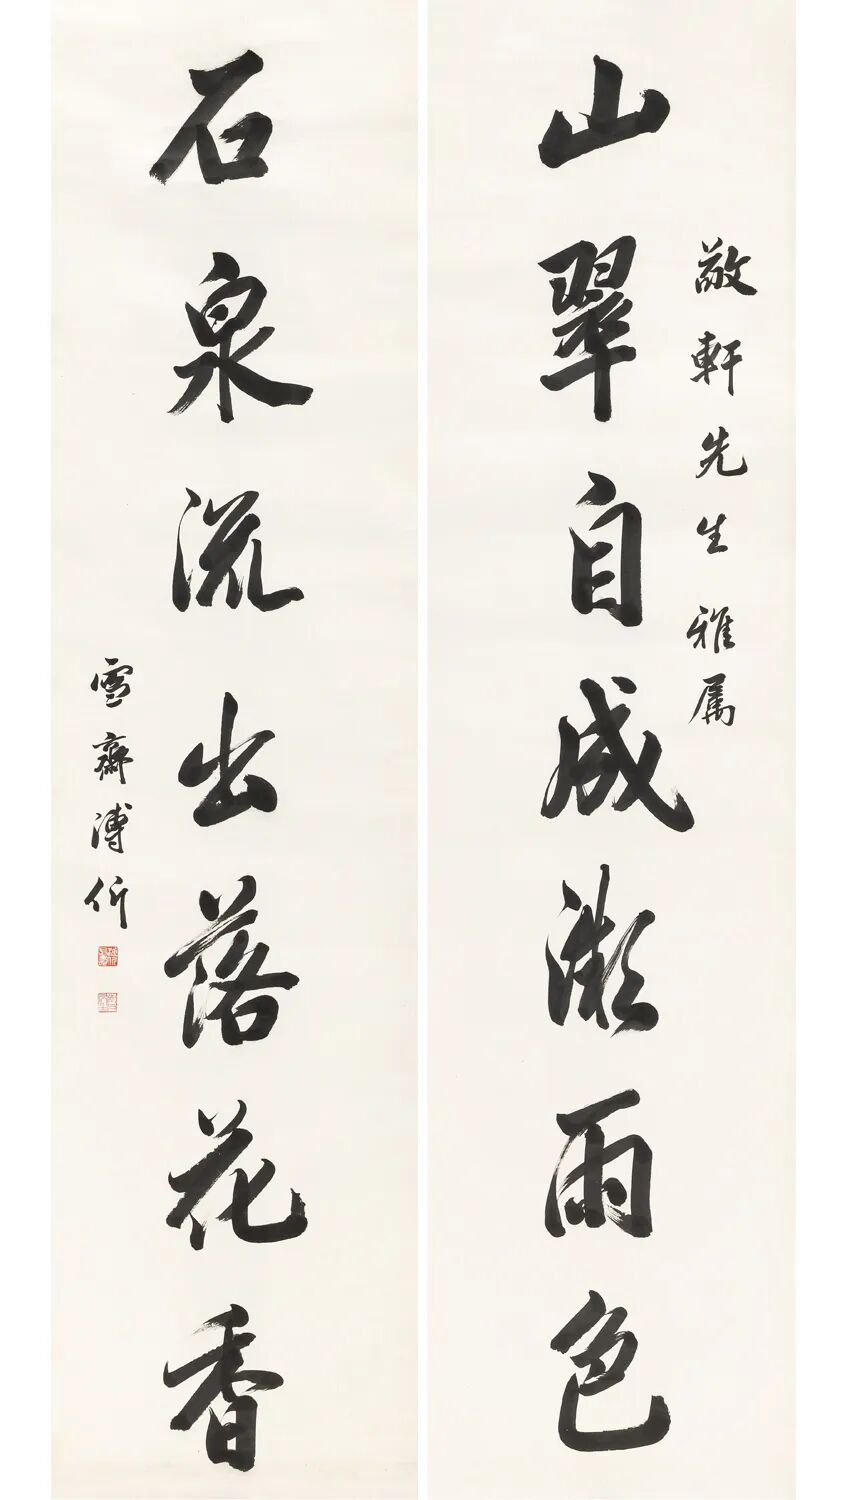 敬軒先生雅属
山翠自成微雨色
石泉流出落花香
雪齋溥伒